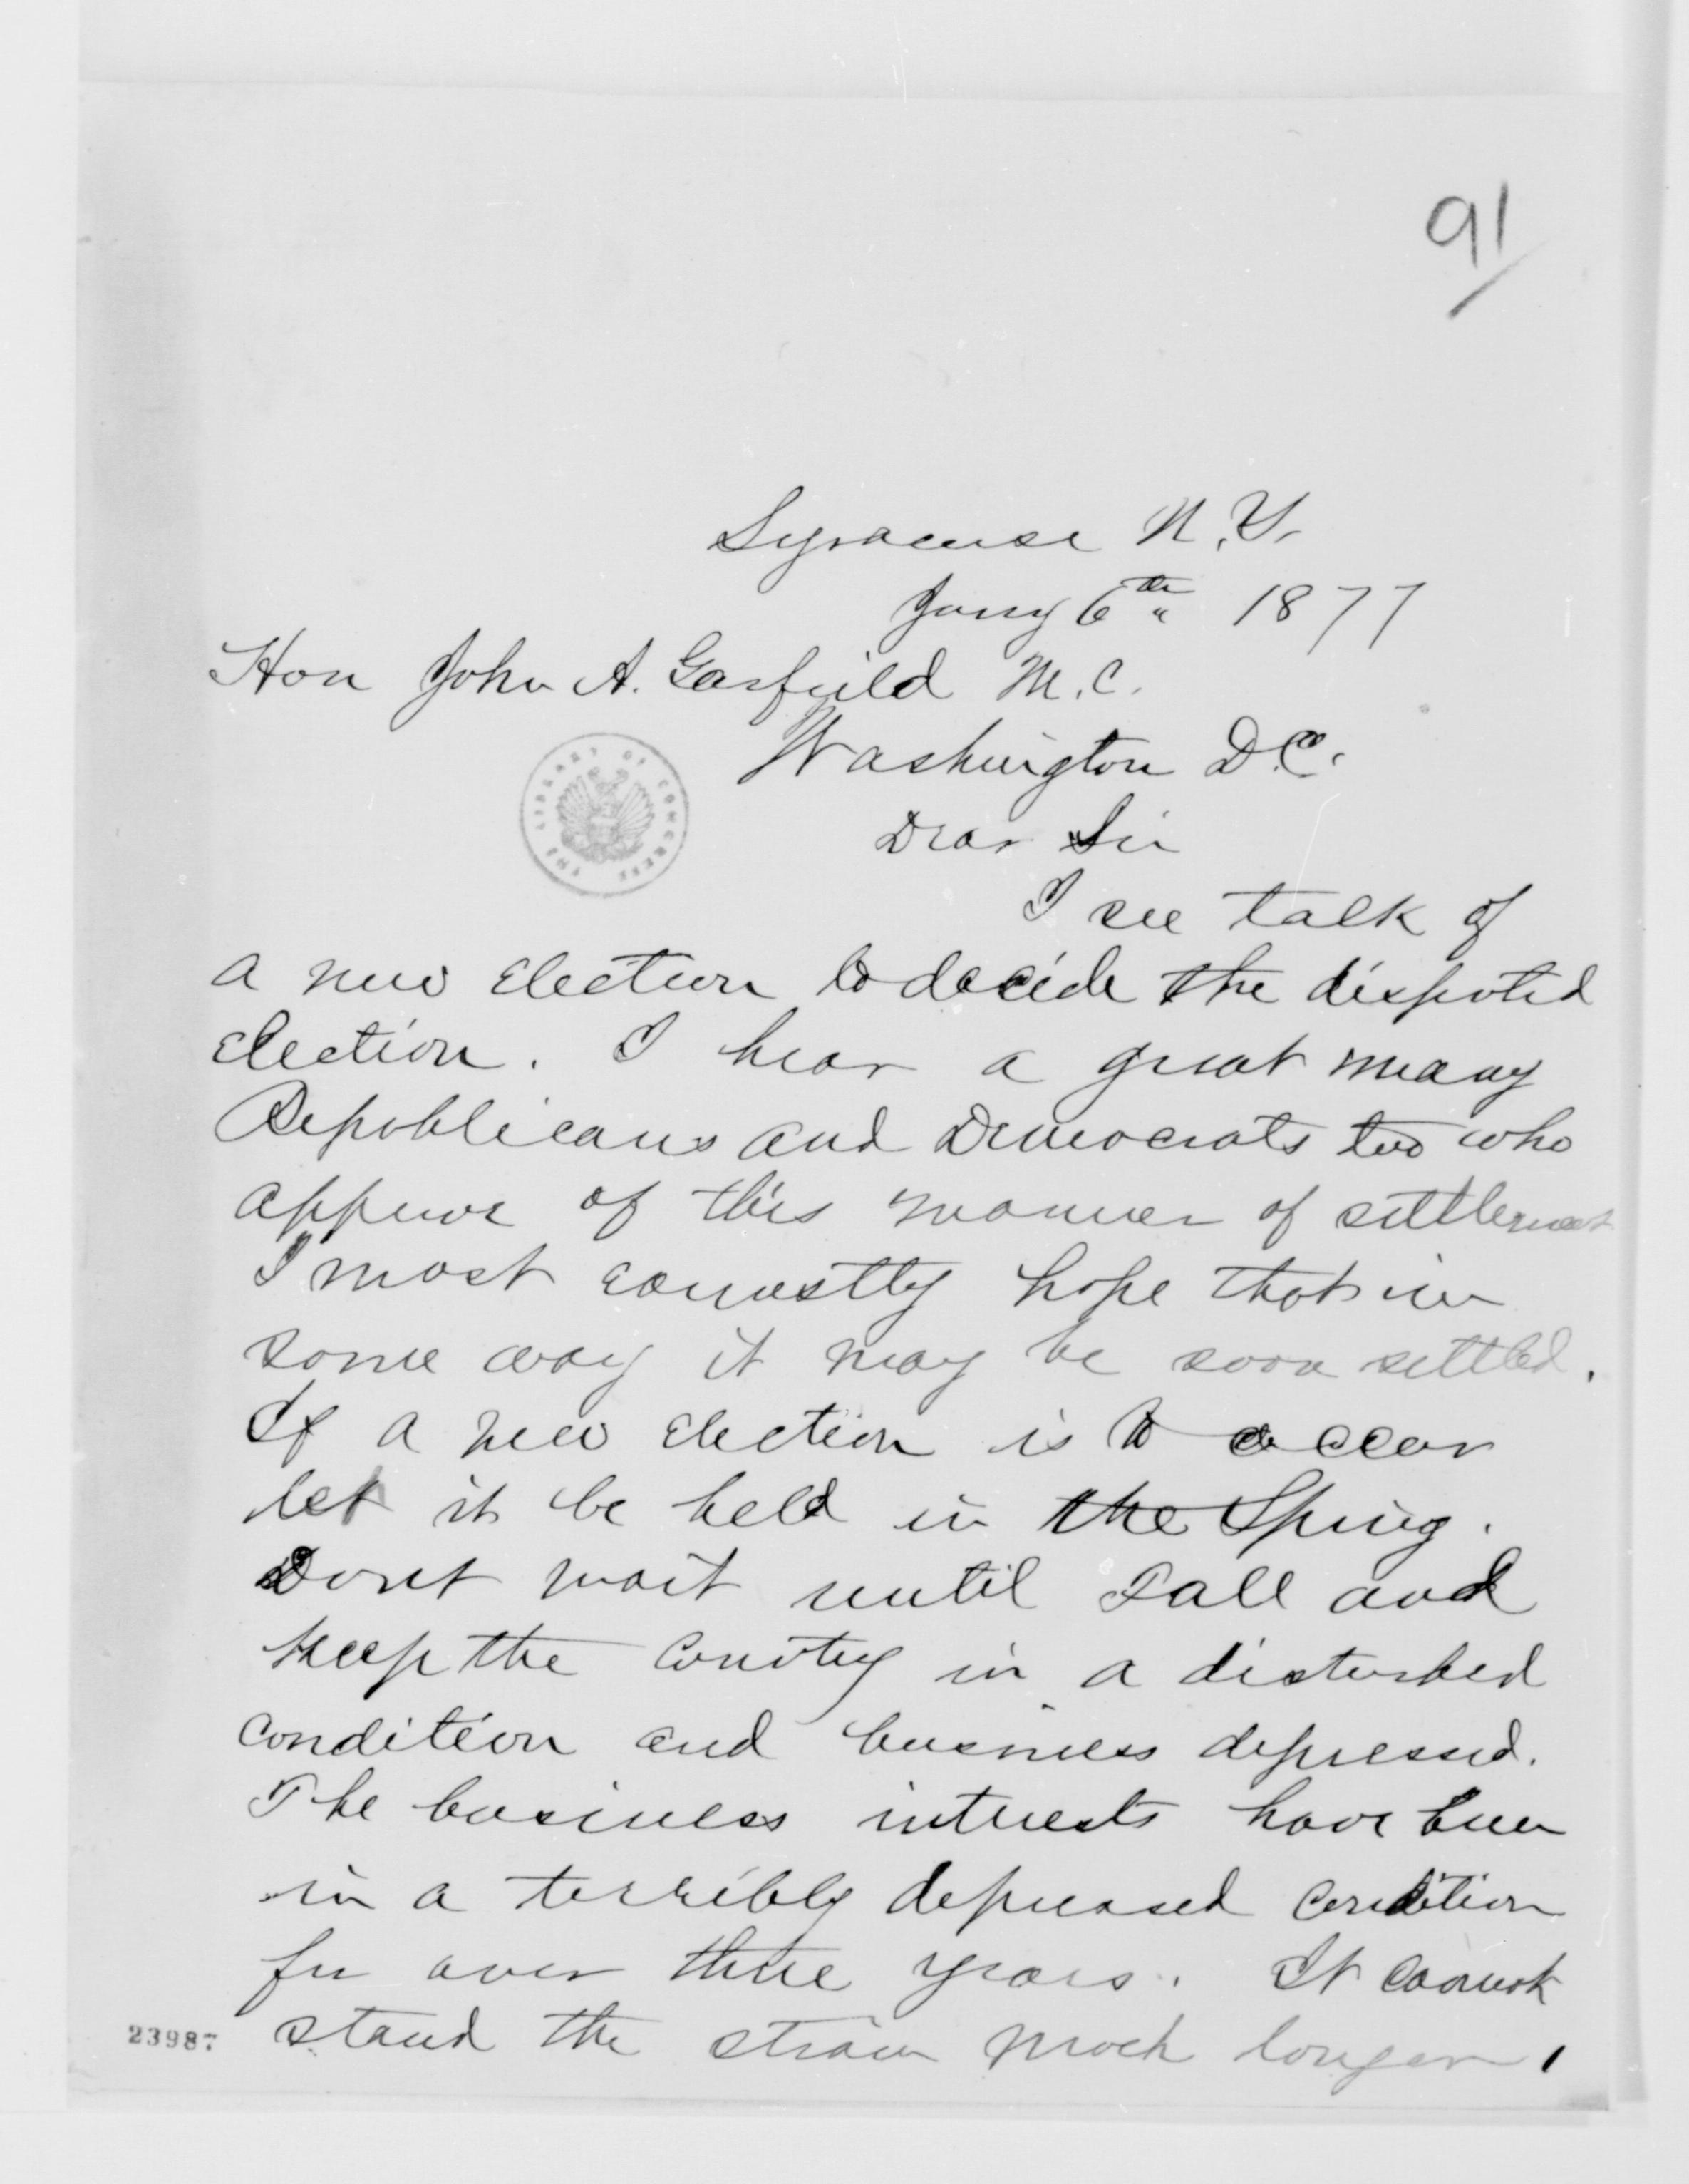 91
Syracuse N.Y.
Jany 6th 1877
Hon John A. Garfield M.C.
Washington D.C.
THE LIBRARY OF CONGRESS
Dear Sir
I see talk of
a new election to decide the disputed
election. I hear a great many
Republicans and Democrats too who
approve of this manner of settlement
I most earnestly hope that in
some way it may be soon settled.
If a new election is to occur
let it be held in the Spring.
Dont wait until Fall and
keep the country in a disturbed
condition and business depressed.
The business interests have been
in a terribly depressed condition
for over three years. It cannot
stand the strain much longer.
23987